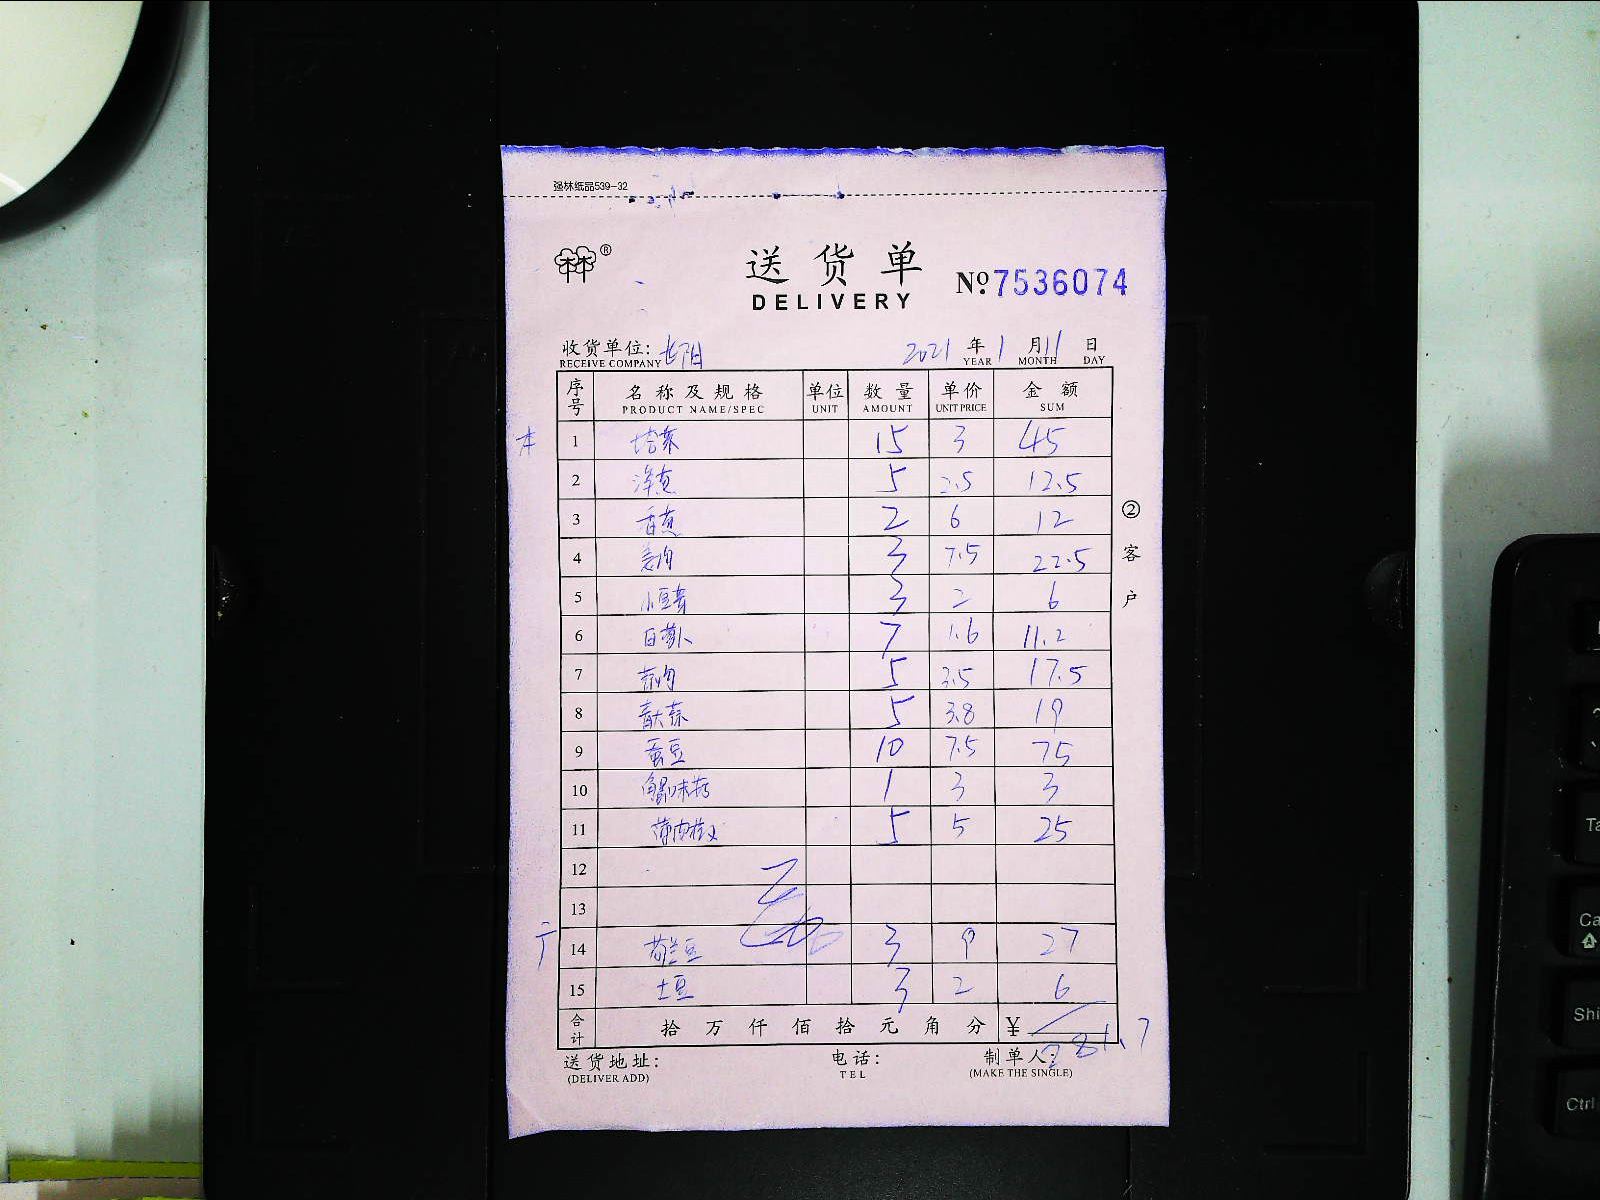 强林纸品539-32
送货单
DELIVERY
№7536074
收货单位: 长阳 2021年1月11日
RECEIVE COMPANY YEAR MONTH DAY
序号 名称及规格 单位 数量 单价 金额
PRODUCT NAME/SPEC UNIT AMOUNT UNIT PRICE SUM
1 15 3 45
2 洋葱 5 2.5 12.5
3 香葱 2 6 12
4 姜肉 3 7.5 22.5
5 3 2 6
6 白萝卜 7 1.6 11.2
7 5 3.5 17.5
8 青大蒜 5 3.8 19
9 蚕豆 10 7.5 75
10 蟹味菇 1 3 3
11 5 5 25
12
13
14 荷兰豆 3 9 27
15 土豆 3 2 6
合计 拾万仟佰拾元角分 ¥ 281.7
送货地址: 电话: 制单人:
(DELIVER ADD) TEL (MAKE THE SINGLE)
②客户
Ta
Ca
Shi
Ctrl